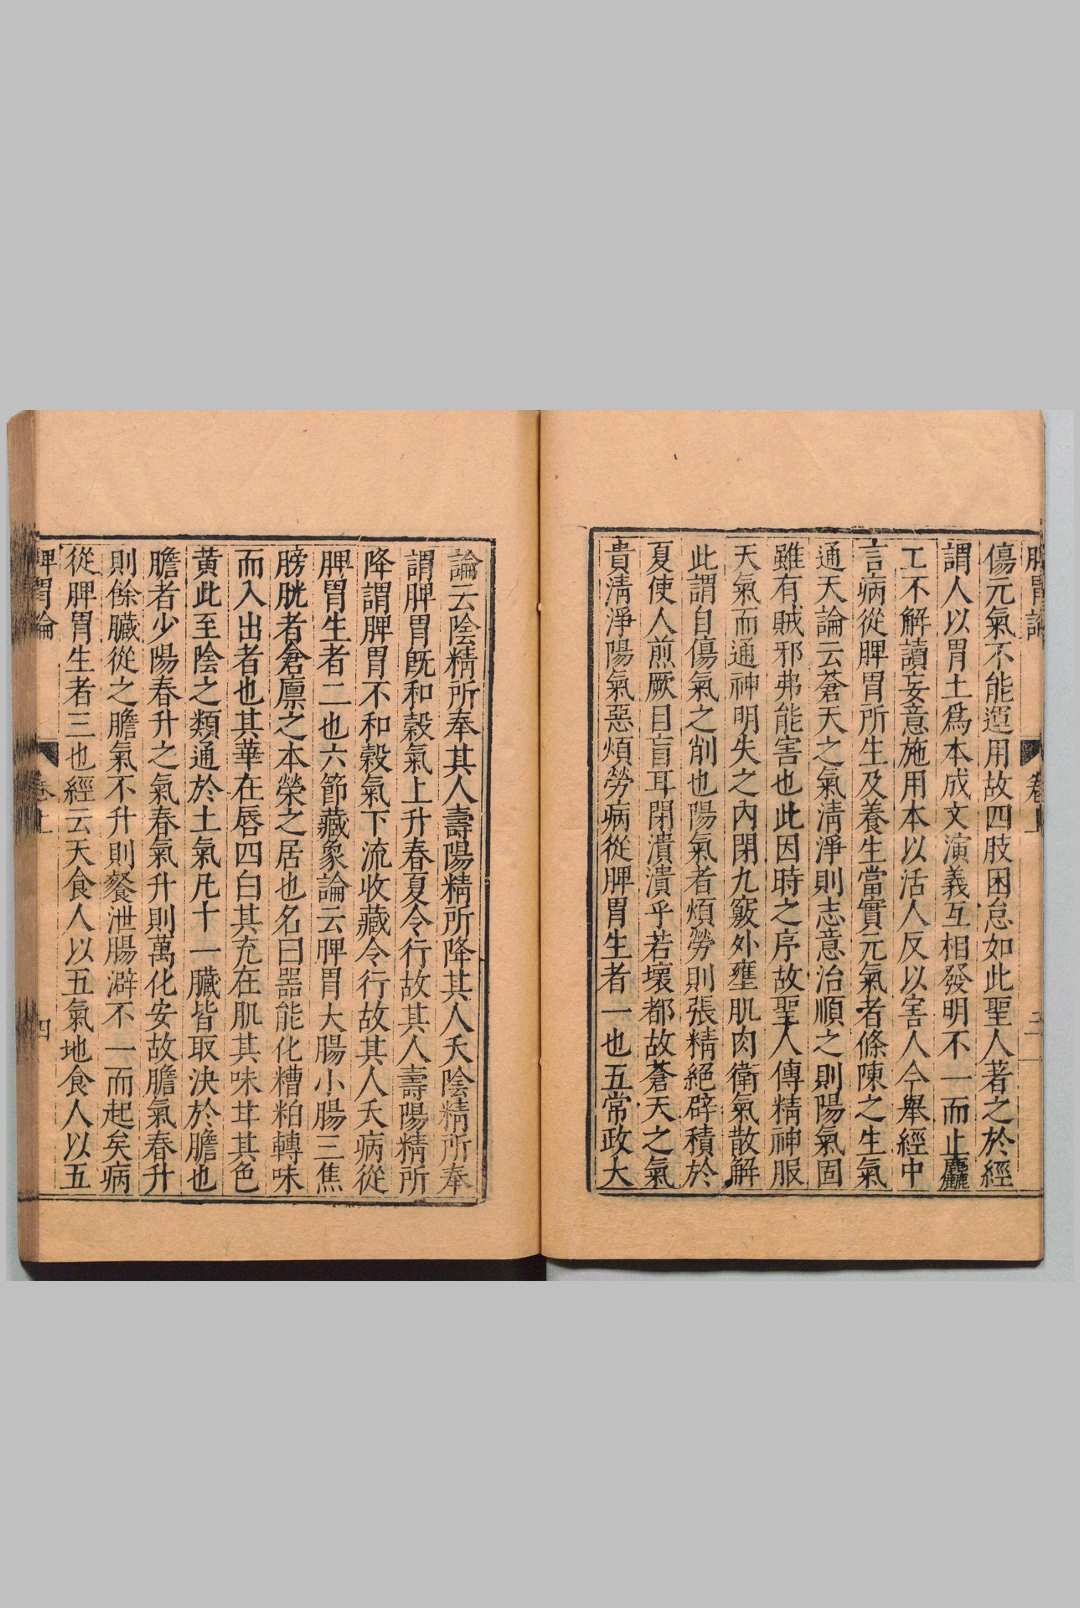 脾胃論
卷上
三
傷元氣不能運用故四肢困怠如此聖人著之於經
謂人以胃土爲本成文演義互相發明不一而止麤
工不解讀妄意施用本以活人反以害人今舉經中
言病從脾胃所生及養生當實元氣者條陳之生氣
通天論云蒼天之氣清淨則志意治順之則陽氣固
雖有賊邪弗能害也此因時之序故聖人傳精神服
天氣而通神明失之內閉九竅外壅肌肉衛氣散解
此謂自傷氣之削也陽氣者煩勞則張精絕辟積於
夏使人煎厥目盲耳閉潰潰乎若壞都故蒼天之氣
貴清淨陽氣惡煩勞病從脾胃生者一也五常政大
論云陰精所奉其人壽陽精所降其人夭陰精所奉
謂脾胃旣和穀氣上升春夏令行故其人壽陽精所
降謂脾胃不和穀氣下流收藏令行故其人夭病從
脾胃生者二也六節藏象論云脾胃大腸小腸三焦
膀胱者倉廩之本榮之居也名曰器能化糟粕轉味
而入出者也其華在唇四白其充在肌其味甘其色
黃此至陰之類通於土氣凡十一臟皆取決於膽也
膽者少陽春升之氣春氣升則萬化安故膽氣春升
則餘臟從之膽氣不升則飧泄腸澼不一而起矣病
從脾胃生者三也經云天食人以五氣地食人以五
脾胃論
卷上
四